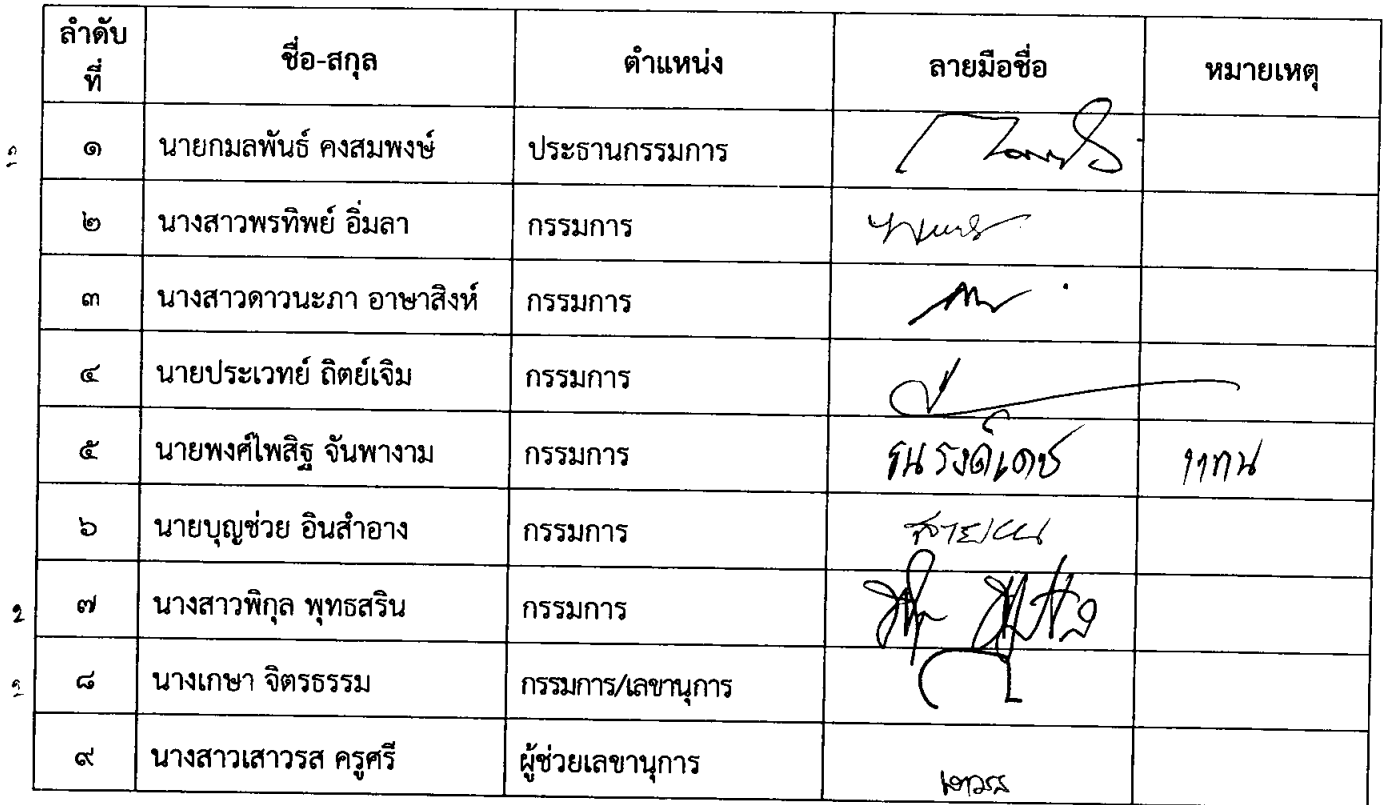 ลำดับที่ ชื่อ-สกุล ตำแหน่ง ลายมือชื่อ หมายเหตุ
๑ นายกมลพันธ์ คงสมพงษ์ ประธานกรรมการ
๒ นางสาวพรทิพย์ อิ่มลา กรรมการ
๓ นางสาวดาวนะภา อาษาสิงห์ กรรมการ
๔ นายประเวทย์ ถิตย์เจิม กรรมการ
๕ นายพงศ์ไพสิฐ จันพางาม กรรมการ แทน
๖ นายบุญช่วย อินสำอาง กรรมการ
๗ นางสาวพิกุล พุทธสริน กรรมการ
๘ นางเกษา จิตรธรรม กรรมการ/เลขานุการ
๙ นางสาวเสาวรส ครูศรี ผู้ช่วยเลขานุการ